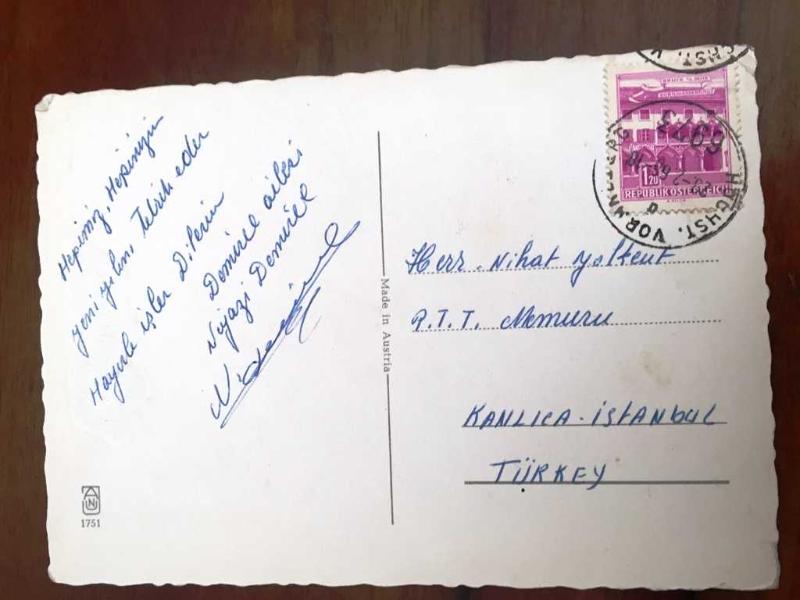 Hepiniz, Hepinizin
yeni yılını, tebrik eder
Hayırlı işler Dilerim
Demirel ailesi
Niyazi Demirel
Made in Austria
1751
REPUBLIK ÖSTERREICH
1.20
6973
HÖCHST. VOR
Herr. Nihat Yalkut
P.T.T. Memuru
KANLICA-İSTANBUL
TÜRKEY